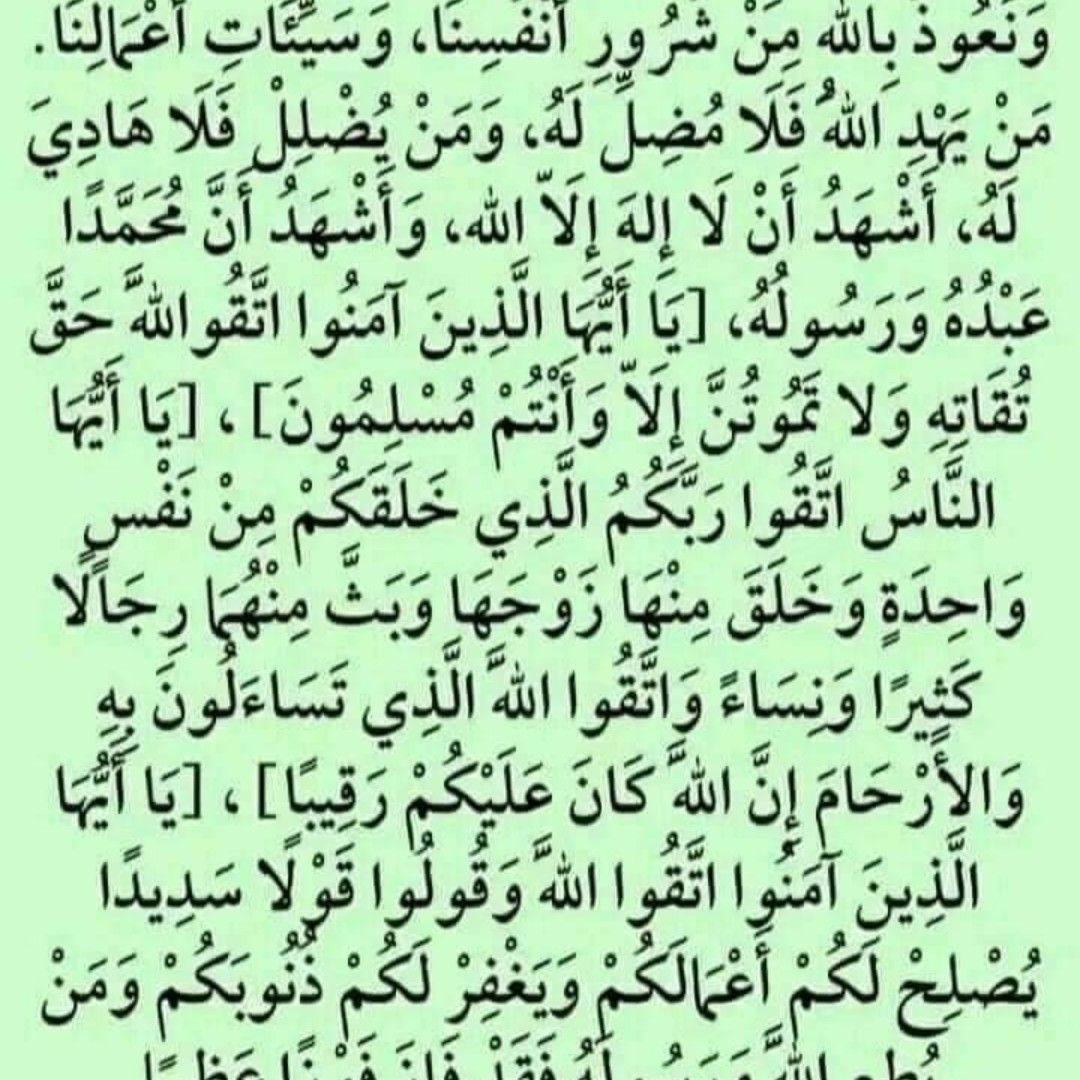 وَنَعُوذُ بِاللهِ مِنْ شُرُورِ أَنْفُسِنَا، وَسَيِّئَاتِ أَعْمَالِنَا.
مَنْ يَهْدِ اللهُ فَلَا مُضِلَّ لَهُ، وَمَنْ يُضْلِلْ فَلَا هَادِيَ
لَهُ، أَشْهَدُ أَنْ لَا إِلهَ إِلَّا الله، وَأَشْهَدُ أَنَّ مُحَمَّدًا
عَبْدُهُ وَرَسُولُهُ، [يَا أَيُّهَا الَّذِينَ آمَنُوا اتَّقُو اللهَّ حَقَّ
تُقَاتِهِ وَلا تَمُوتُنَّ إِلَّا وَأَنْتُمْ مُسْلِمُونَ] ، [يَا أَيُّهَا
النَّاسُ اتَّقُوا رَبَّكُمُ الَّذِي خَلَقَكُمْ مِنْ نَفْسٍ
وَاحِدَةٍ وَخَلَقَ مِنْهَا زَوْجَهَا وَبَثَّ مِنْهُمَا رِجَالًا
كَثِيرًا وَنِسَاءً وَاتَّقُوا اللهَّ الَّذِي تَسَاءَلُونَ بِهِ
وَالأَرْحَامَ إِنَّ اللهَّ كَانَ عَلَيْكُمْ رَقِيبًا] ، [يَا أَيُّهَا
الَّذِينَ آمَنُوا اتَّقُوا اللهَّ وَقُولُوا قَوْلًا سَدِيدًا
يُصْلِحْ لَكُمْ أَعْمَالَكُمْ وَيَغْفِرْ لَكُمْ ذُنُوبَكُمْ وَمَنْ
يُطِعِ اللهَّ وَرَسُولَهُ فَقَدْ فَازَ فَوْزًا عَظِيمًا